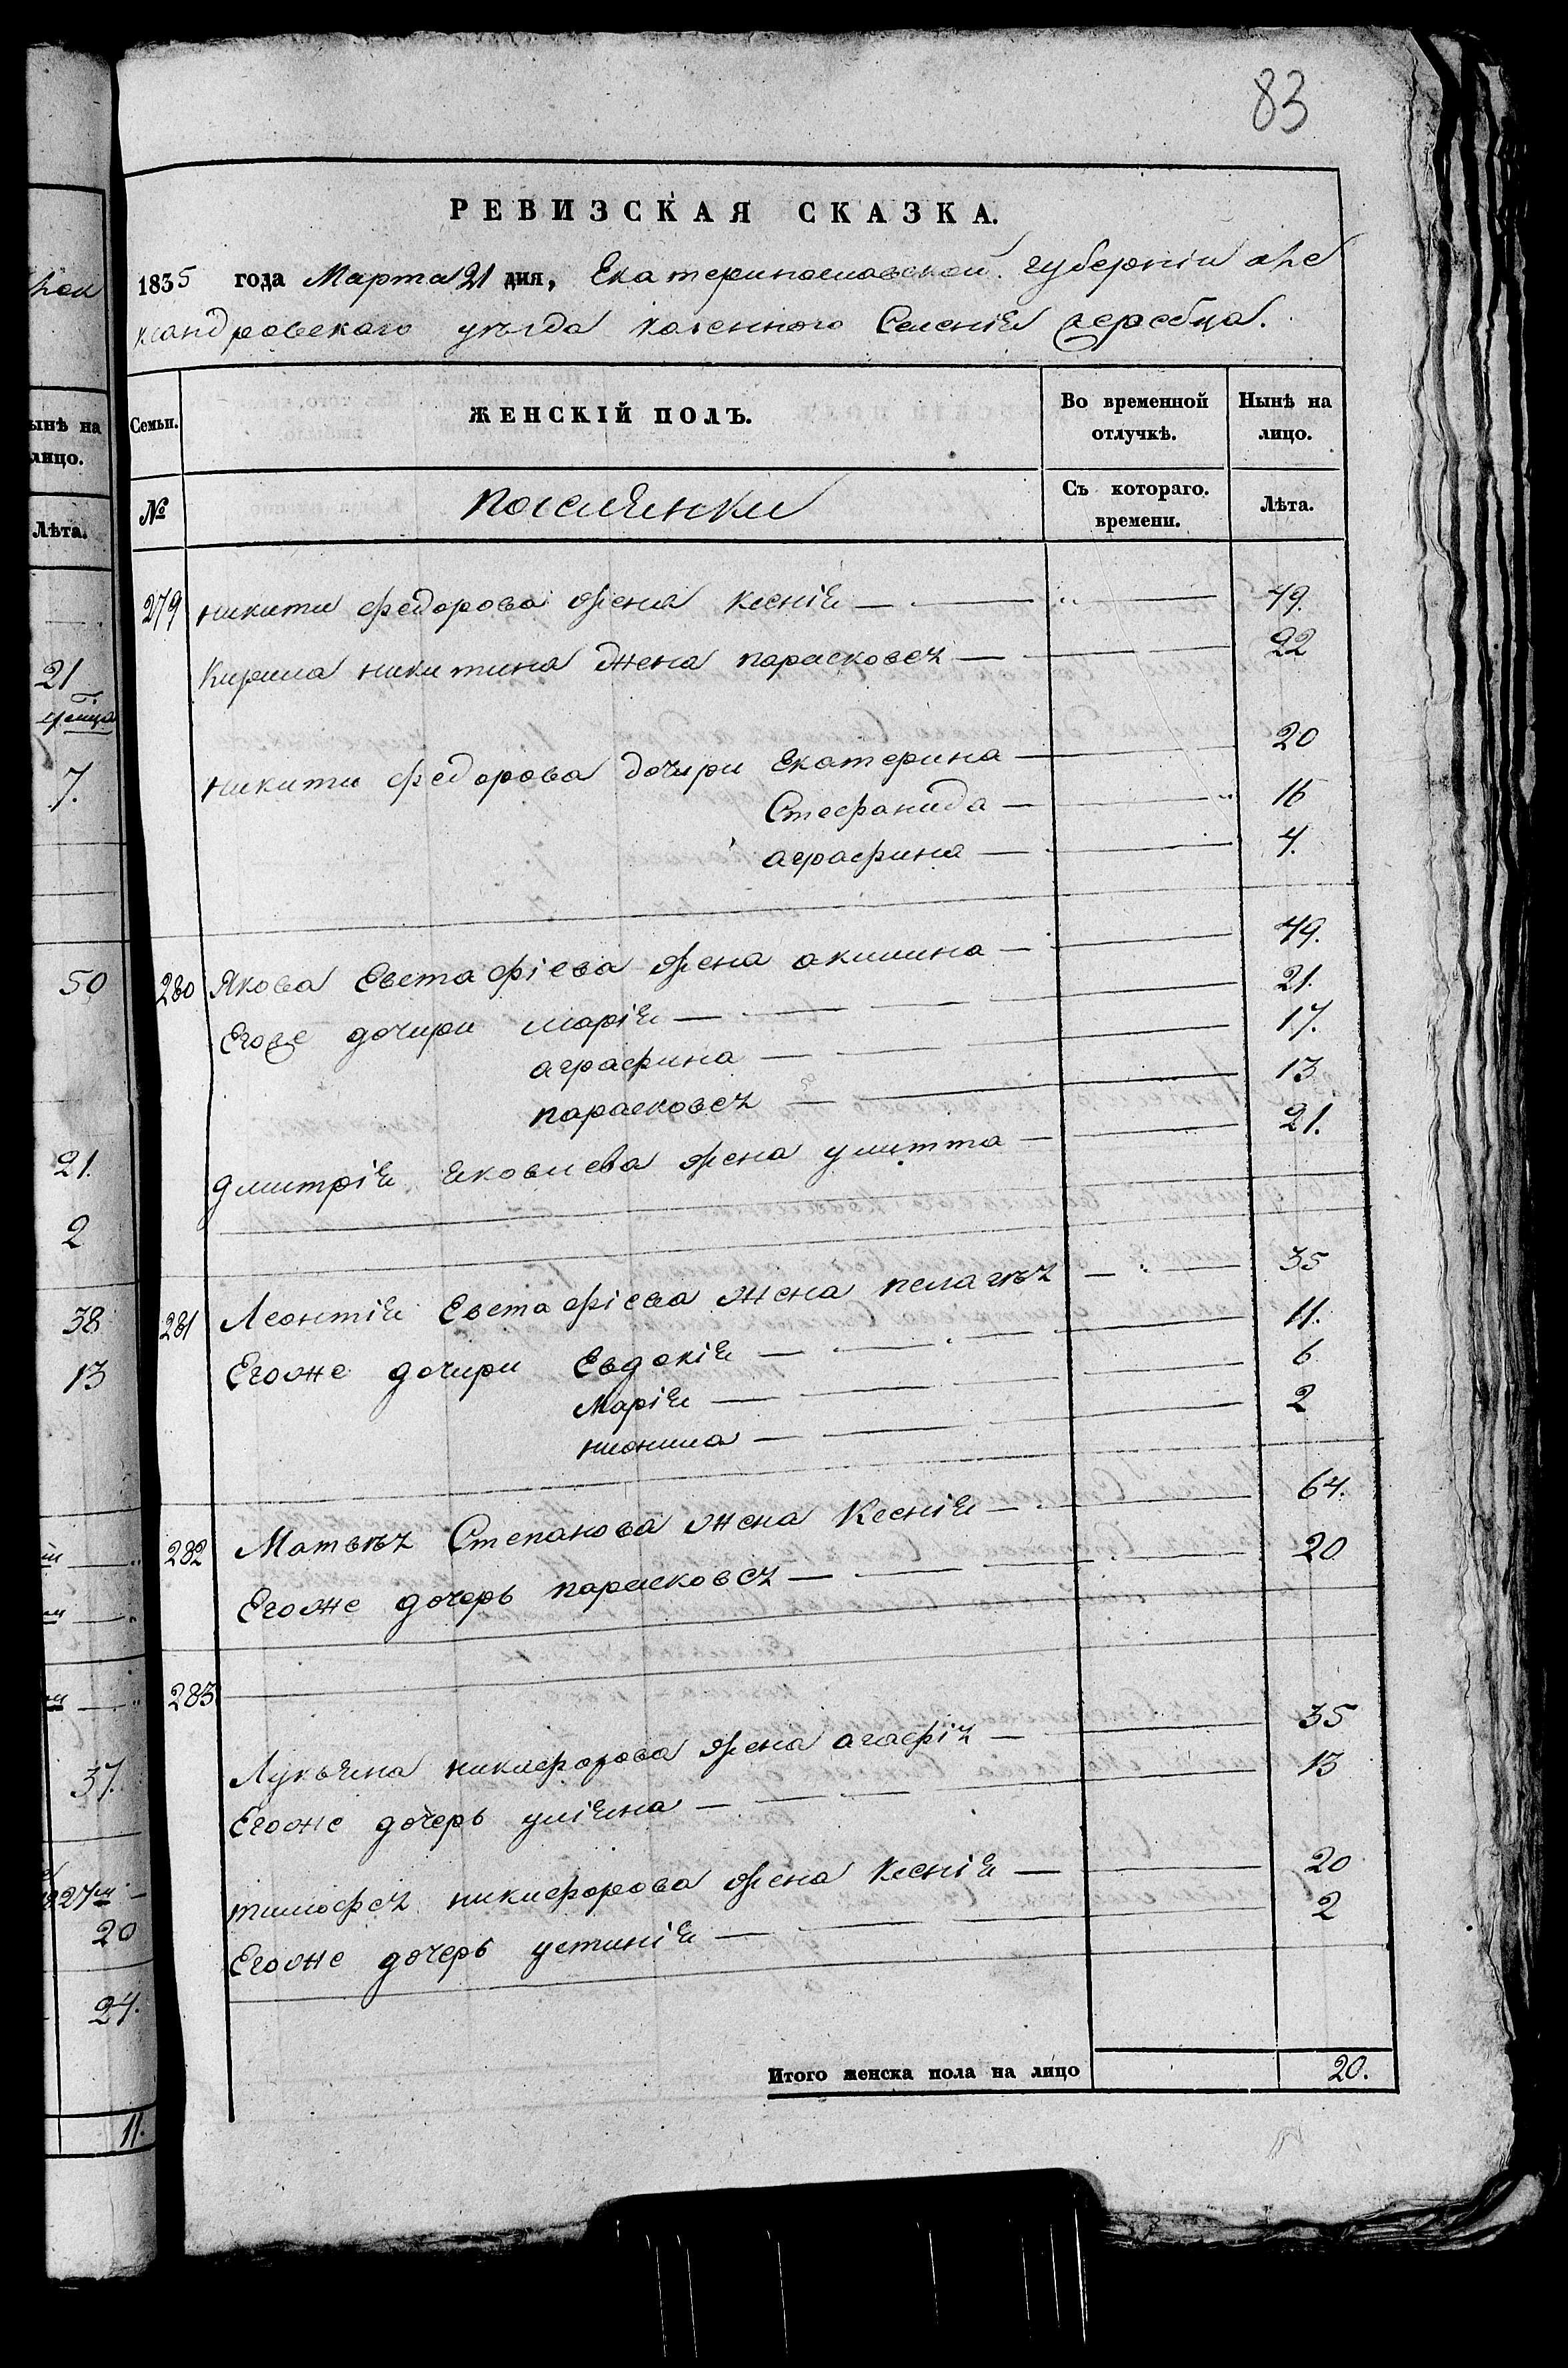 83
РЕВИЗСКАЯ СКАЗКА.
1835 года Марта 21 дня, Екатеринославской губерніи але
ксандровского уѣзда казенного Селенія жеребца.
Семьи. ЖЕНСКІЙ ПОЛЪ. Во временной отлучкѣ. Нынѣ на лицо.
№ поселянки Съ котораго. времени. Лѣта.
279 никиты федорова жена ксенія — 49.
Кирила никитина жена парасковея — 22
никиты федорова дочири Екатерина — 20
Стефанида — 16
аграфина — 4.
280 Якова Евстафіева жена акилина — 49.
Егоже дочири марія — 21.
аграфина — 17.
парасковея — 13
дмитрія яковлева жена улитта — 21.
281 Леонтія Евстафіева жена пелагѣя — 35
Егоже дочири Евдокія — 11.
Марія — 6
нионила — 2
282 Матвѣя Степанова жена Ксенія — 64.
Егоже дочерь парасковея — 20
283
Лукьяна никифорова жена агафія — 35
Егоже дочерь уліяна — 13
тимофея никифорова жена ксенія — 20
Егоже дочерь устинія — 2
Итого женска пола на лицо 20.
ынѣ на
лицо.
Лѣта.
21
7.
50
21.
2
38
13
37.
27
20
24.
11.